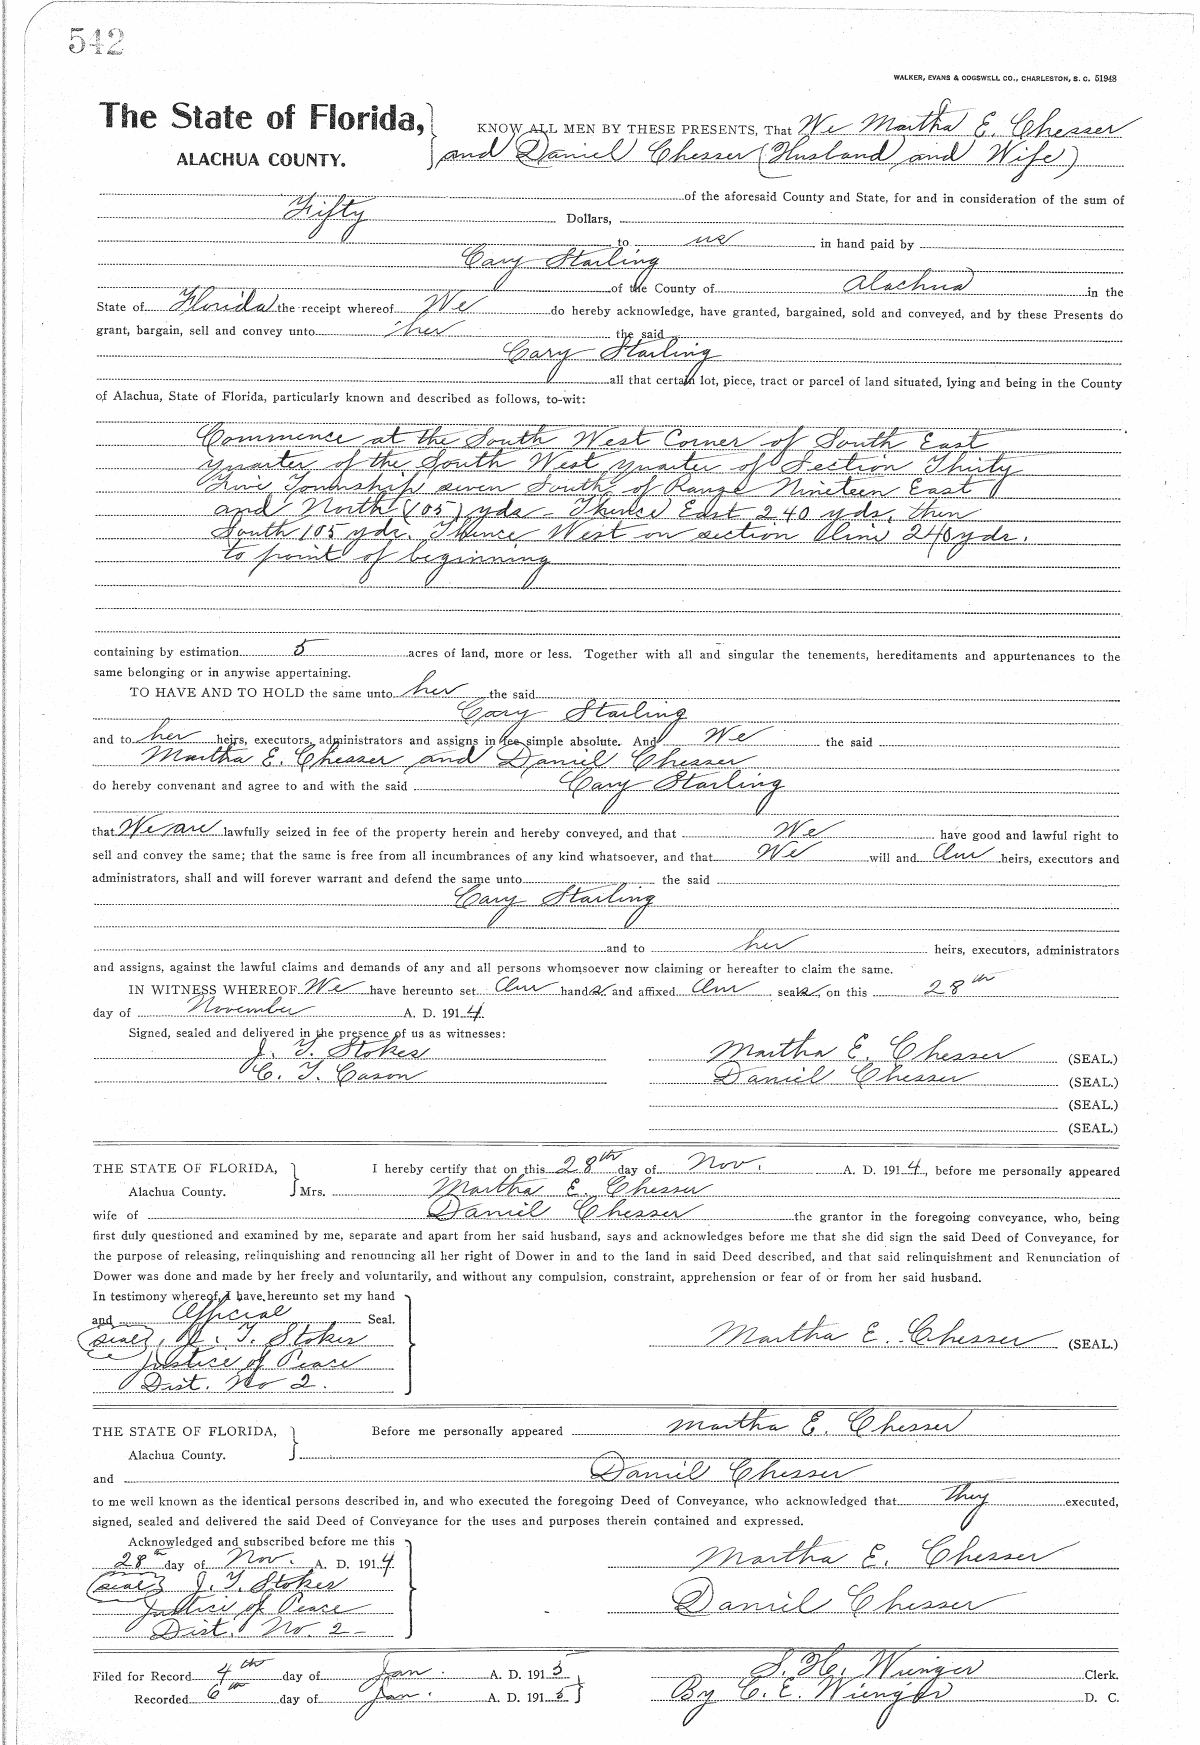 542
WALKER, EVANS & COGSWELL CO., CHARLESTON, S. C. 51948
The State of Florida,
ALACHUA COUNTY.
KNOW ALL MEN BY THESE PRESENTS, That We Martha E. Chesser
and Daniel Chesser (Husband and Wife)
of the aforesaid County and State, for and in consideration of the sum of
Fifty Dollars,
to us in hand paid by
Cary Starling
of the County of Alachua in the
State of Florida the receipt whereof We do hereby acknowledge, have granted, bargained, sold and conveyed, and by these Presents do
grant, bargain, sell and convey unto her the said
Cary Starling
all that certain lot, piece, tract or parcel of land situated, lying and being in the County
of Alachua, State of Florida, particularly known and described as follows, to-wit:
Commence at the South West Corner of South East
Quarter of the South West Quarter of Section Thirty
Five Township seven South of Range Nineteen East
and North (105) yds - Thence East 240 yds, then
South 105 yds. Thence West on section line 240 yds.
to point of beginning
containing by estimation 5 acres of land, more or less. Together with all and singular the tenements, hereditaments and appurtenances to the
same belonging or in anywise appertaining.
TO HAVE AND TO HOLD the same unto her the said
Cary Starling
and to her heirs, executors, administrators and assigns in fee simple absolute. And We the said
Martha E. Chesser and Daniel Chesser
do hereby convenant and agree to and with the said Cary Starling
that We are lawfully seized in fee of the property herein and hereby conveyed, and that We have good and lawful right to
sell and convey the same; that the same is free from all incumbrances of any kind whatsoever, and that We will and Our heirs, executors and
administrators, shall and will forever warrant and defend the same unto the said
Cary Starling
and to her heirs, executors, administrators
and assigns, against the lawful claims and demands of any and all persons whomsoever now claiming or hereafter to claim the same.
IN WITNESS WHEREOF We have hereunto set Our hands and affixed Our seals, on this 28th
day of November A. D. 1914.
Signed, sealed and delivered in the presence of us as witnesses:
J. T. Stokes
Martha E. Chesser (SEAL.)
C. T. Cason
Daniel Chesser (SEAL.)
(SEAL.)
(SEAL.)
THE STATE OF FLORIDA,
Alachua County.
I hereby certify that on this 28th day of Nov. A. D. 1914, before me personally appeared
Mrs. Martha E. Chesser
wife of Daniel Chesser the grantor in the foregoing conveyance, who, being
first duly questioned and examined by me, separate and apart from her said husband, says and acknowledges before me that she did sign the said Deed of Conveyance, for
the purpose of releasing, relinquishing and renouncing all her right of Dower in and to the land in said Deed described, and that said relinquishment and Renunciation of
Dower was done and made by her freely and voluntarily, and without any compulsion, constraint, apprehension or fear of or from her said husband.
In testimony whereof, I have hereunto set my hand
and Official Seal.
(seal), J. T. Stokes
Martha E. Chesser (SEAL.)
Justice of Peace
Dist. No 2.
THE STATE OF FLORIDA,
Alachua County.
Before me personally appeared Martha E. Chesser
and Daniel Chesser
to me well known as the identical persons described in, and who executed the foregoing Deed of Conveyance, who acknowledged that they executed,
signed, sealed and delivered the said Deed of Conveyance for the uses and purposes therein contained and expressed.
Acknowledged and subscribed before me this
28th day of Nov. A. D. 1914
Martha E. Chesser
(seal) J. T. Stokes
Justice of Peace
Daniel Chesser
Dist. No. 2-
Filed for Record 4th day of Jan. A. D. 1915
S. H. Wienger Clerk.
Recorded 6th day of Jan. A. D. 1915
By C. E. Wienger D. C.